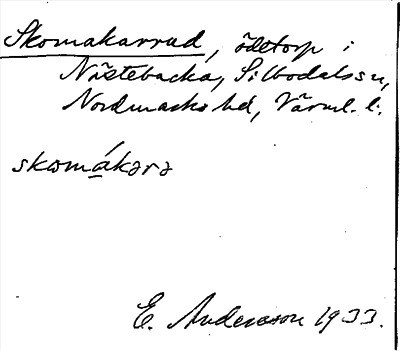 Skomakarrud, ödetorp i
Nästebacka, Silbodals sn,
Nordmarks hd, Värml. l.
skomákərə
E. Andersson 1933.